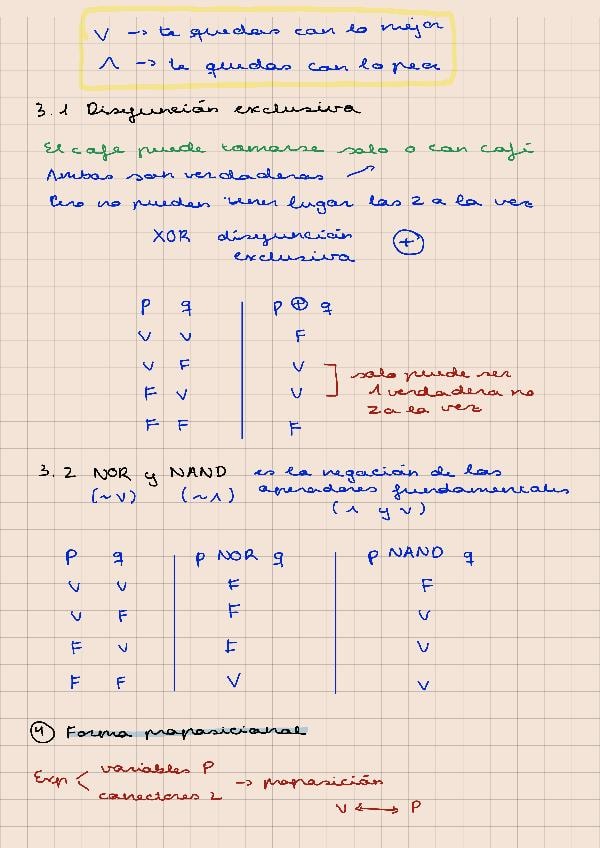 V → te quedas con lo mejor
Λ → te quedas con lo peor
3.1 Disyunción exclusiva
El cafe puede tomarse solo o con café
Ambas son verdaderas
Pero no pueden tener lugar las 2 a la vez
XOR disyunción exclusiva ⊕
p q p ⊕ q
V V F
V F V
F V V
F F F
solo puede ser
1 verdadera no
2 a la vez
3.2 NOR y NAND es la negación de los
(~V) (~Λ) operadores fundamentales
(Λ y V)
p q p NOR q p NAND q
V V F F
V F F V
F V F V
F F V V
4 Forma proposicional
Exp < variables P
conectores 2 → proposición
V ↔ P